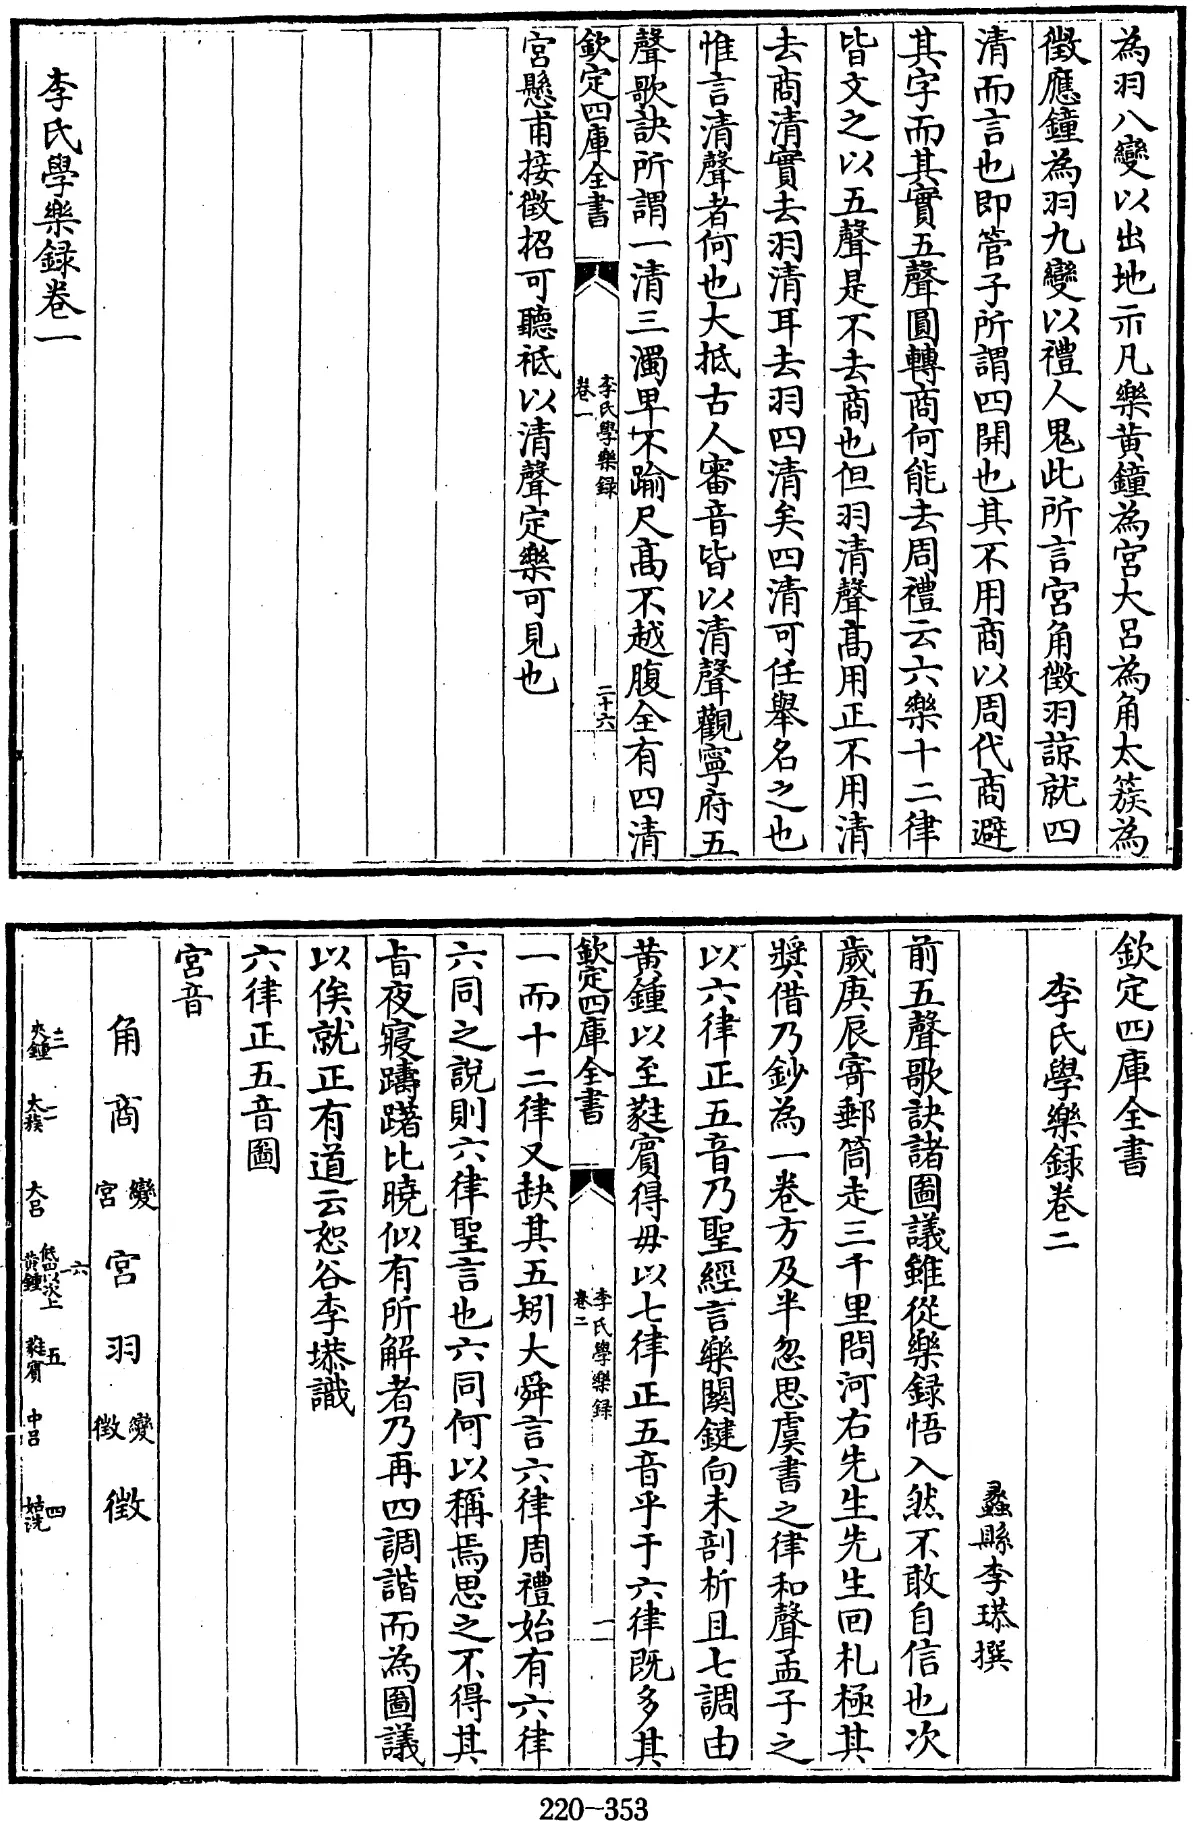 為羽八變以出地示凡樂黄鐘為宮大呂為角太簇為
徵應鐘為羽九變以禮人鬼此所言宮角徵羽諒就四
清而言也即管子所謂四開也其不用商以周代商避
其字而其實五聲圓轉商何能去周禮云六樂十二律
皆文之以五聲是不去商也但羽清聲髙用正不用清
去商清實去羽清耳去羽四清矣四清可任舉名之也
惟言清聲者何也大抵古人審音皆以清聲觀寧府五
聲歌訣所謂一清三濁卑不踰尺髙不越腹全有四清
欽定四庫全書
李氏學樂録
卷一
二十六
宮懸甫接徵招可聽祗以清聲定樂可見也
李氏學樂録卷一
欽定四庫全書
李氏學樂録卷二
蠡縣李塨撰
前五聲歌訣諸圖議雖從樂録悟入然不敢自信也次
歲庚辰寄郵筒走三千里問河右先生先生回札極其
奬借乃鈔為一卷方及半忽思虞書之律和聲孟子之
以六律正五音乃聖經言樂關鍵向未剖析且七調由
黄鍾以至蕤賓得毋以七律正五音乎于六律既多其
欽定四庫全書
李氏學樂録
卷二
一
一而十二律又缺其五矧大舜言六律周禮始有六律
六同之說則六律聖言也六同何以稱焉思之不得其
㫖夜寢躊躇比曉似有所解者乃再四調諧而為圖議
以俟就正有道云恕谷李塨識
六律正五音圖
宮音
角 商 變宮 宮 羽 變徵 徵
三夾鐘 二太簇 大呂 一六低以次上黄鍾 五蕤賓 中呂 四姑洗
220-353